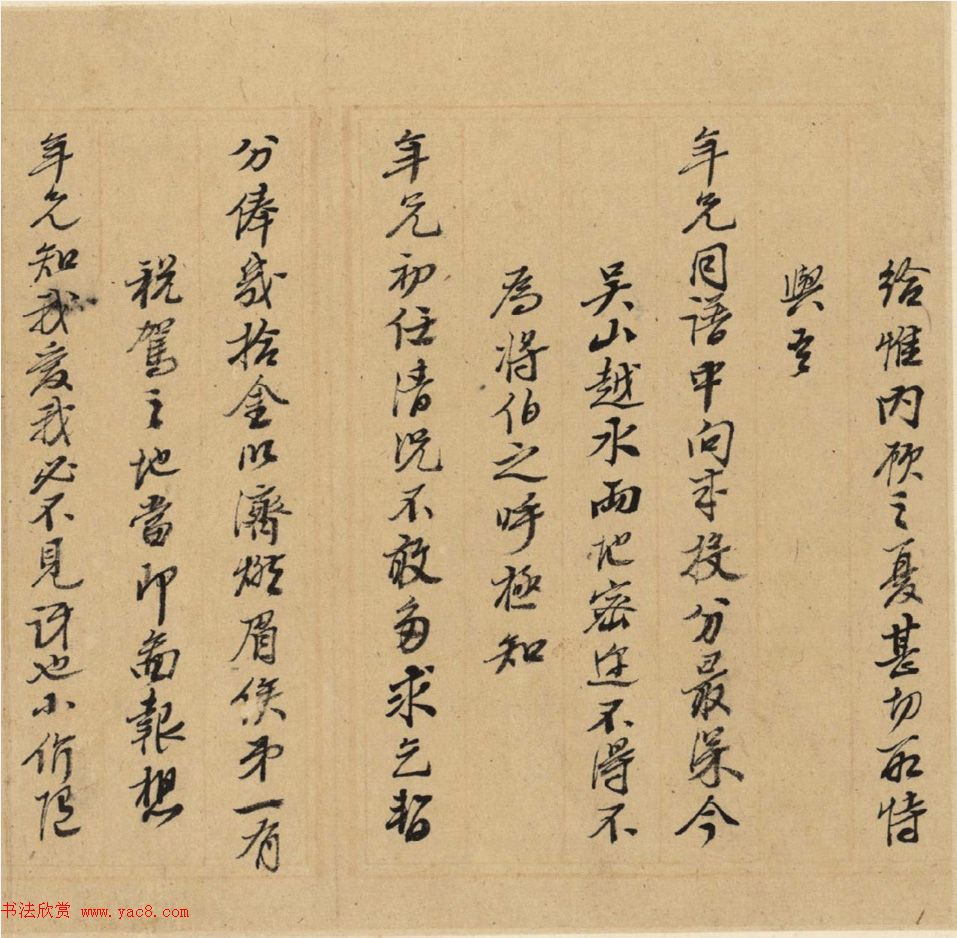 給惟内顧之憂甚切所恃
與吾
年兄同譜中向來投分最深今
吴山越水兩地密迩不得不
為将伯之呼極知
年兄初任清况不敢多求乞暫
分俸幾拾金以濟燃眉俟弟一有
税駕之地當即啚報想
年兄知我愛我必不見訝也小价
书法欣赏 www.yac8.com